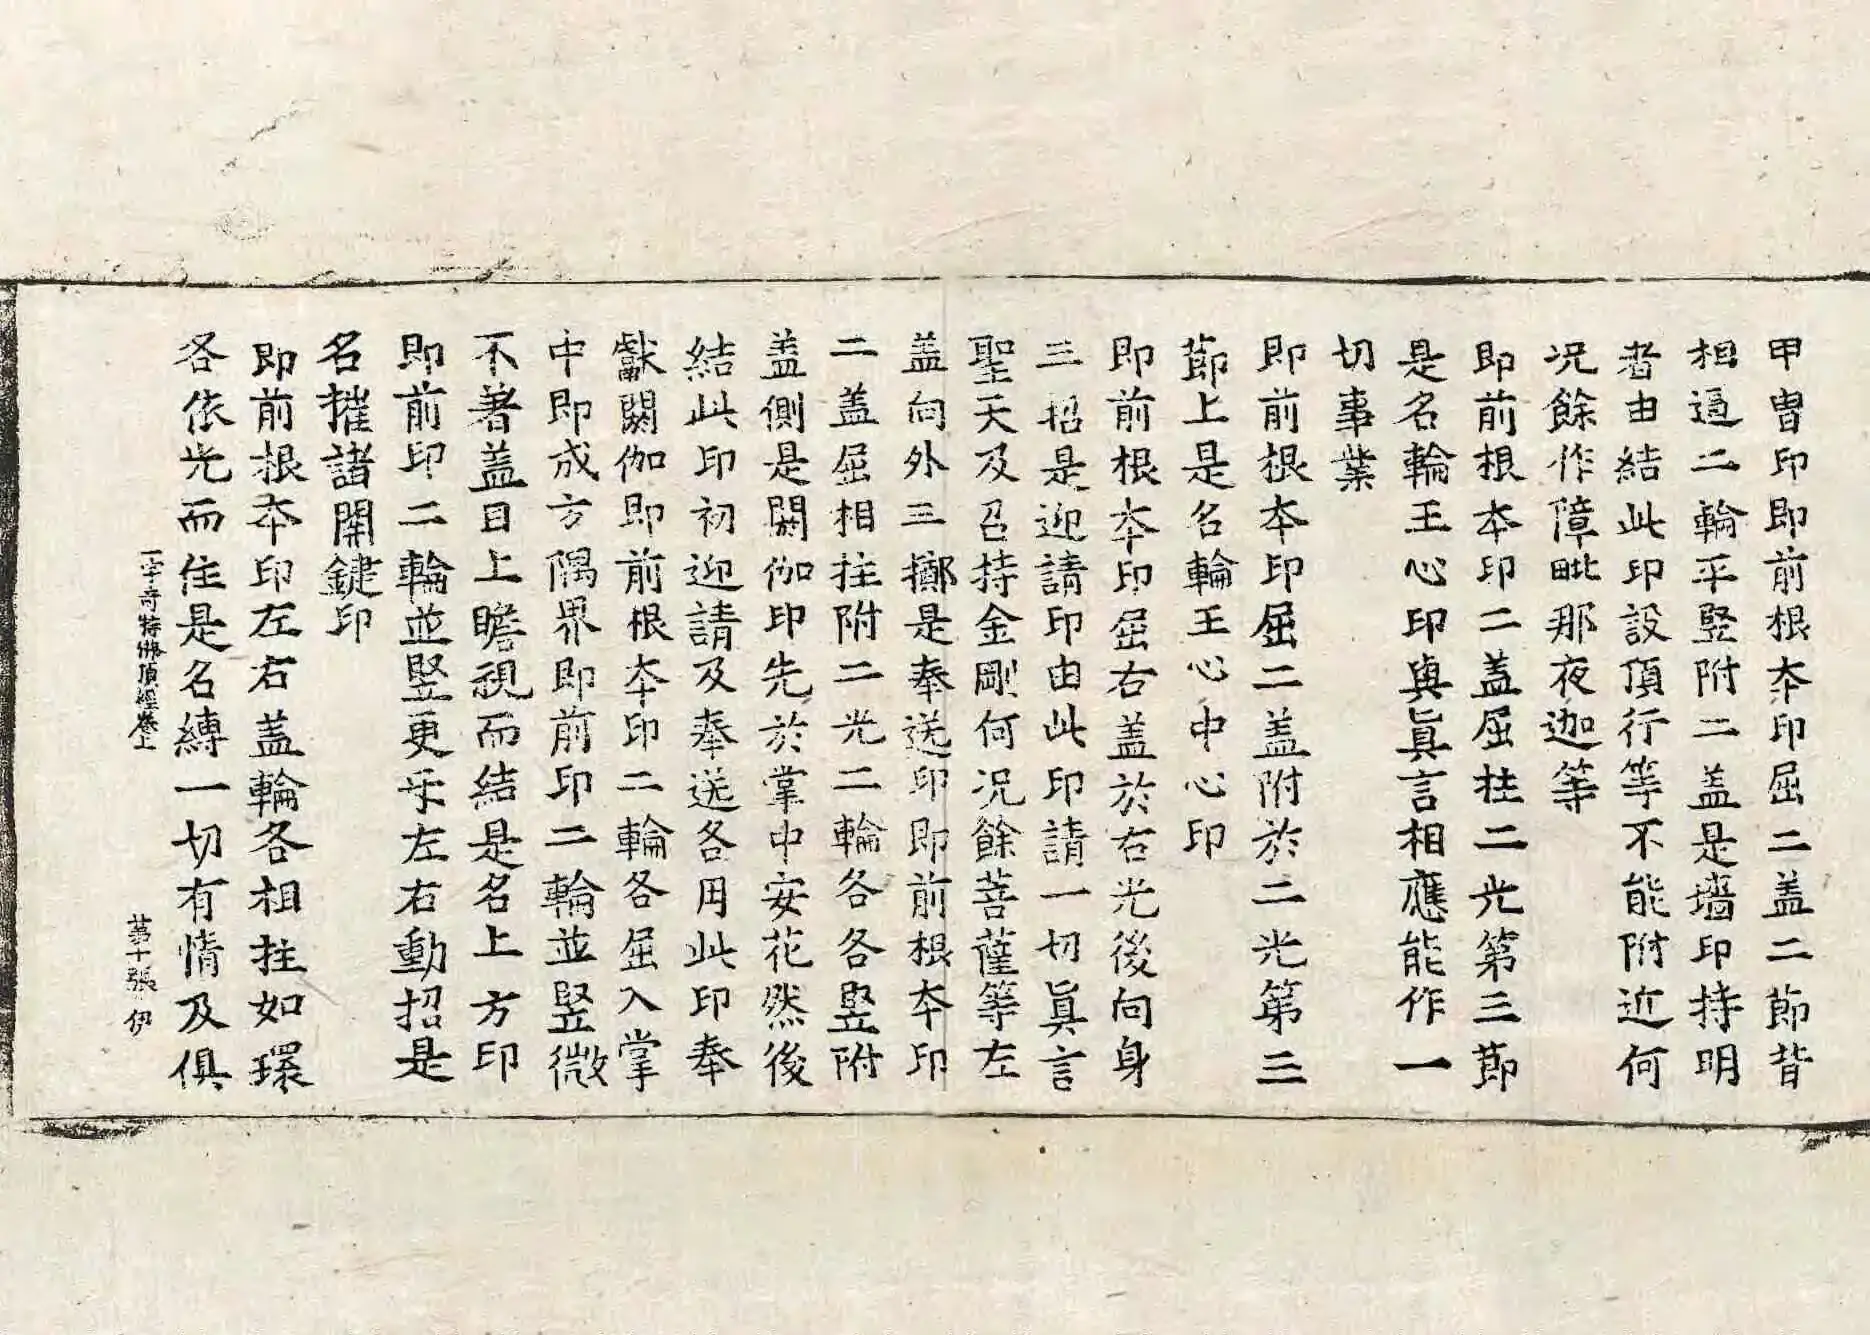 甲冑印即前根夲印屈二盖二節背
相逼二輪平竪附二盖是墻印持明
者由結此印設頂行等不能附近何
况餘作障毗那夜迦等
即前根夲印二盖屈拄二光第三節
是名輪王心印與眞言相應能作一
切事業
即前根夲印屈二盖附於二光第三
節上是名輪王心中心印
即前根夲印屈右盖於右光後向身
三招是迎請印由此印請一切眞言
聖天及召持金剛何况餘菩薩等左
盖向外三擲是奉送印即前根夲印
二盖屈相拄附二光二輪各各竪附
盖側是閼伽印先於掌中安花然後
結此印初迎請及奉送各用此印奉
獻閼伽即前根夲印二輪各屈入掌
中即成方隅界即前印二輪並竪微
不著盖目上瞻視而結是名上方印
即前印二輪並竪更㸦左右動招是
名摧諸開鍵印
即前根夲印左右盖輪各相拄如環
各依光而住是名縛一切有情及俱
一字奇特佛頂經卷上 苐十張 伊